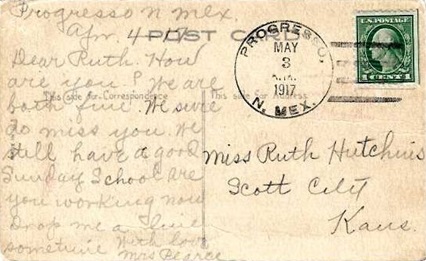 Progresso N Mex.
Apr. 4-17
POST CARD
Dear Ruth. How
are you? We are
both fine. We sure
do miss you. We
still have a good
Sunday School are
you working now
Drop me a line
sometime With love
Mrs Pearce
This side for Correspondence
This side for Address
PROGRESSO,
MAY
3
1917
N. MEX.
U.S. POSTAGE
1 CENT 1
Miss Ruth Hutchins
Scott City
Kans.